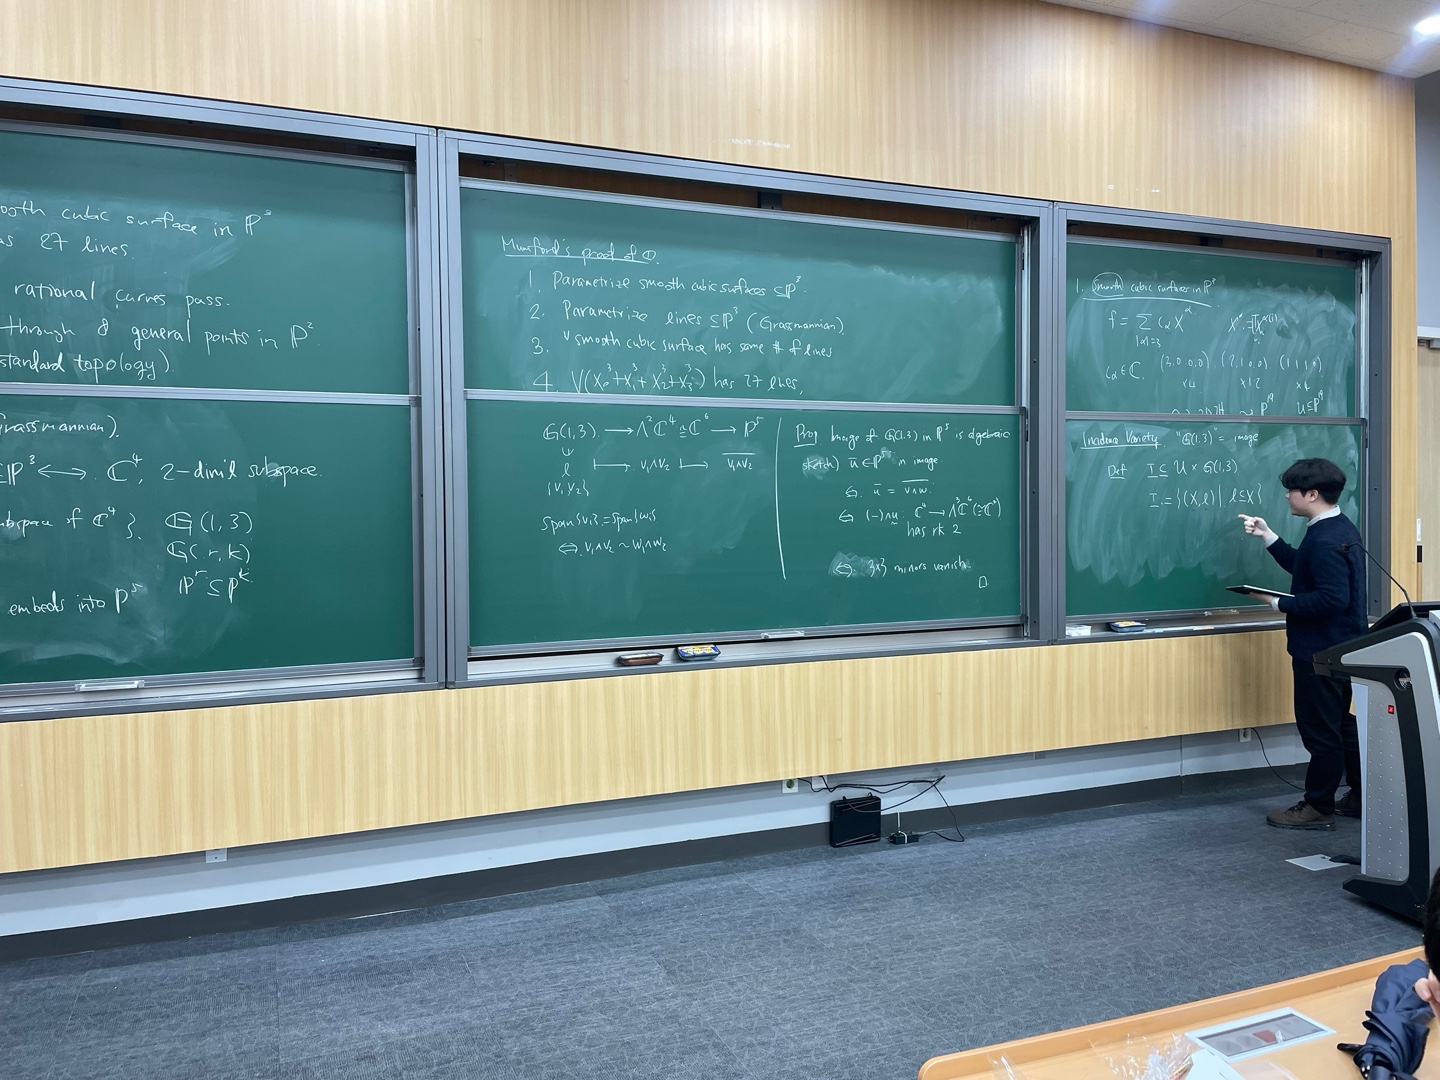 ooth cubic surface in ℙ³
as 27 lines.
rational curves pass.
through 8 general points in ℙ²
standard topology).
Grassmannian).
⊆ℙ³ ⟷ ℂ⁴, 2-dim'l subspace.
ubspace of ℂ⁴}. 𝔾(1,3)
𝔾(r,k)
embeds into ℙ⁵ ℙʳ ⊆ ℙᵏ
Mumford's proof of ①.
1. Parametrize smooth cubic surfaces ⊆ℙ³.
2. Parametrize lines ⊆ℙ³ (Grassmannian)
3. ∀smooth cubic surface has same # of lines
4. V(X₀³+X₁³+X₂³+X₃³) has 27 lines.
𝔾(1,3) ⟶ Λ²ℂ⁴ ≅ ℂ⁶ ⟶ ℙ⁵
Ψ
ℓ ⟼ v₁∧v₂ ⟼ \overline{v₁∧v₂}
{v₁,v₂}
span{vᵢ}=span{wᵢ}
⇔ v₁∧v₂ ~ w₁∧w₂
Prop Image of 𝔾(1,3) in ℙ⁵ is algebraic
sketch) ū∈ℙ⁵ in image
⇔ ū = \overline{v∧w}
⇔ (-)∧u: ℂ⁴ → Λ³ℂ⁴(≅ℂ⁴)
has rk 2
⇔ 3×3 minors vanish.
□
1. Smooth cubic surfaces in ℙ³
f = Σ_{|α|=3} c_α X^α
c_α∈ℂ. (3,0,0,0) (2,1,0,0) (1,1,1,0)
x4 x12 x4
ℙ¹⁹ U⊆ℙ¹⁹
Incidence Variety "𝔾(1,3)" = image
Def I ⊆ U × 𝔾(1,3)
I := {(X,ℓ) | ℓ⊆X}